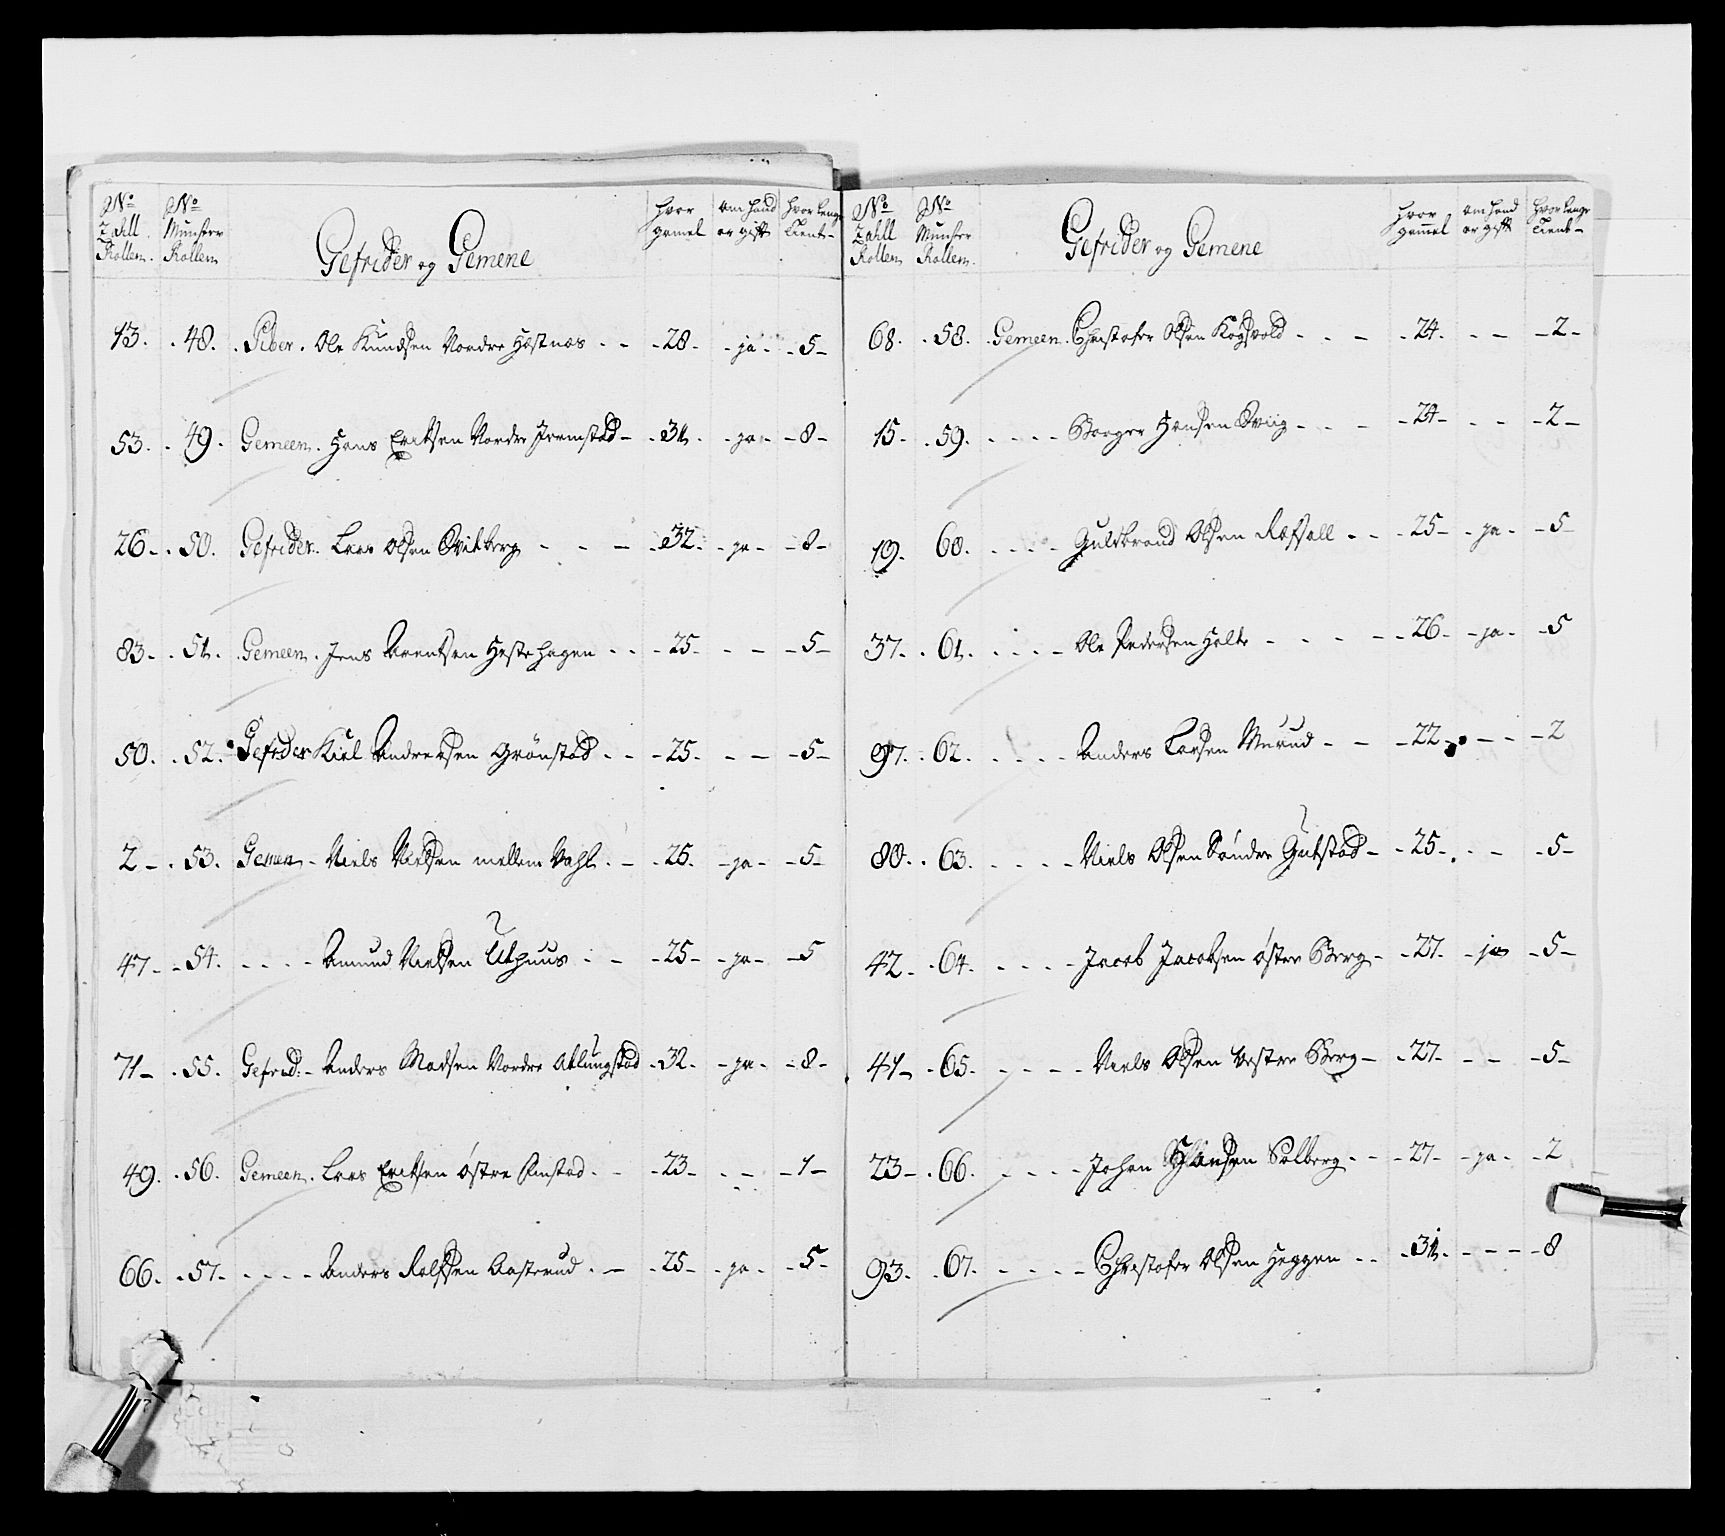 No Zahll Rollen. No Munster Rollen Gefrider og Gemene hvor gamel om hand er gift hvor lenge tient-
13. 48. Piber. Ole Knudsen Nordre Hæstnæs 28. ja. 5-
53. 49. Gemeen. Hans Erichsen Nordre Jremstad 31. ja. 8-
26. 50. Gefrider. Lars Olsen Qvitberg 32. ja 8-
83. 51. Gemeen. Jens Arentsen Hestehagen 25. 5-
50. 52. Gefrider Kiel Andreesen Grönstad 25. 5-
2 53. Gemen Niels Nielsen mellem Wahl 25. ja 5-
47 54. Amund Nielsen Uthuus 25 ja 5
71 55. Gefrid: Anders Madsen Nordre Atlungstad 32. ja. 8-
49. 56. Gemeen. Lars Erichsen Østre Rinstad 23 1-
66. 57. Anders Rolfsen Aasterud 25 ja 5-
No Zahll Rollen No Munster Rollen. Gefrider og Gemene hvor gammel om hand er gift hvor lenge tient-
68. 58. Gemeen. Christofer Olsen Kogsvold 24. 2-
15. 59. Borger Hansen Qviig 24. 2-
19. 60. Guldbrand Olsen Ræfsall 25 ja. 5
37. 61. Ole Pedersen Holte 26. ja. 5
97. 62. Anders Larsen Murud 22 2
80. 63. Niels Olsen Söndre Gutstad 25 5-
42 64. Jacob Jacobsen østre Berg 27. ja 5-
41 65. Niels Olsen Vestre Berg 27 5-
23 66. Johan Hansen Solberg 27 ja. 2
93. 67. Christofer Olsen Heggen 31. 8